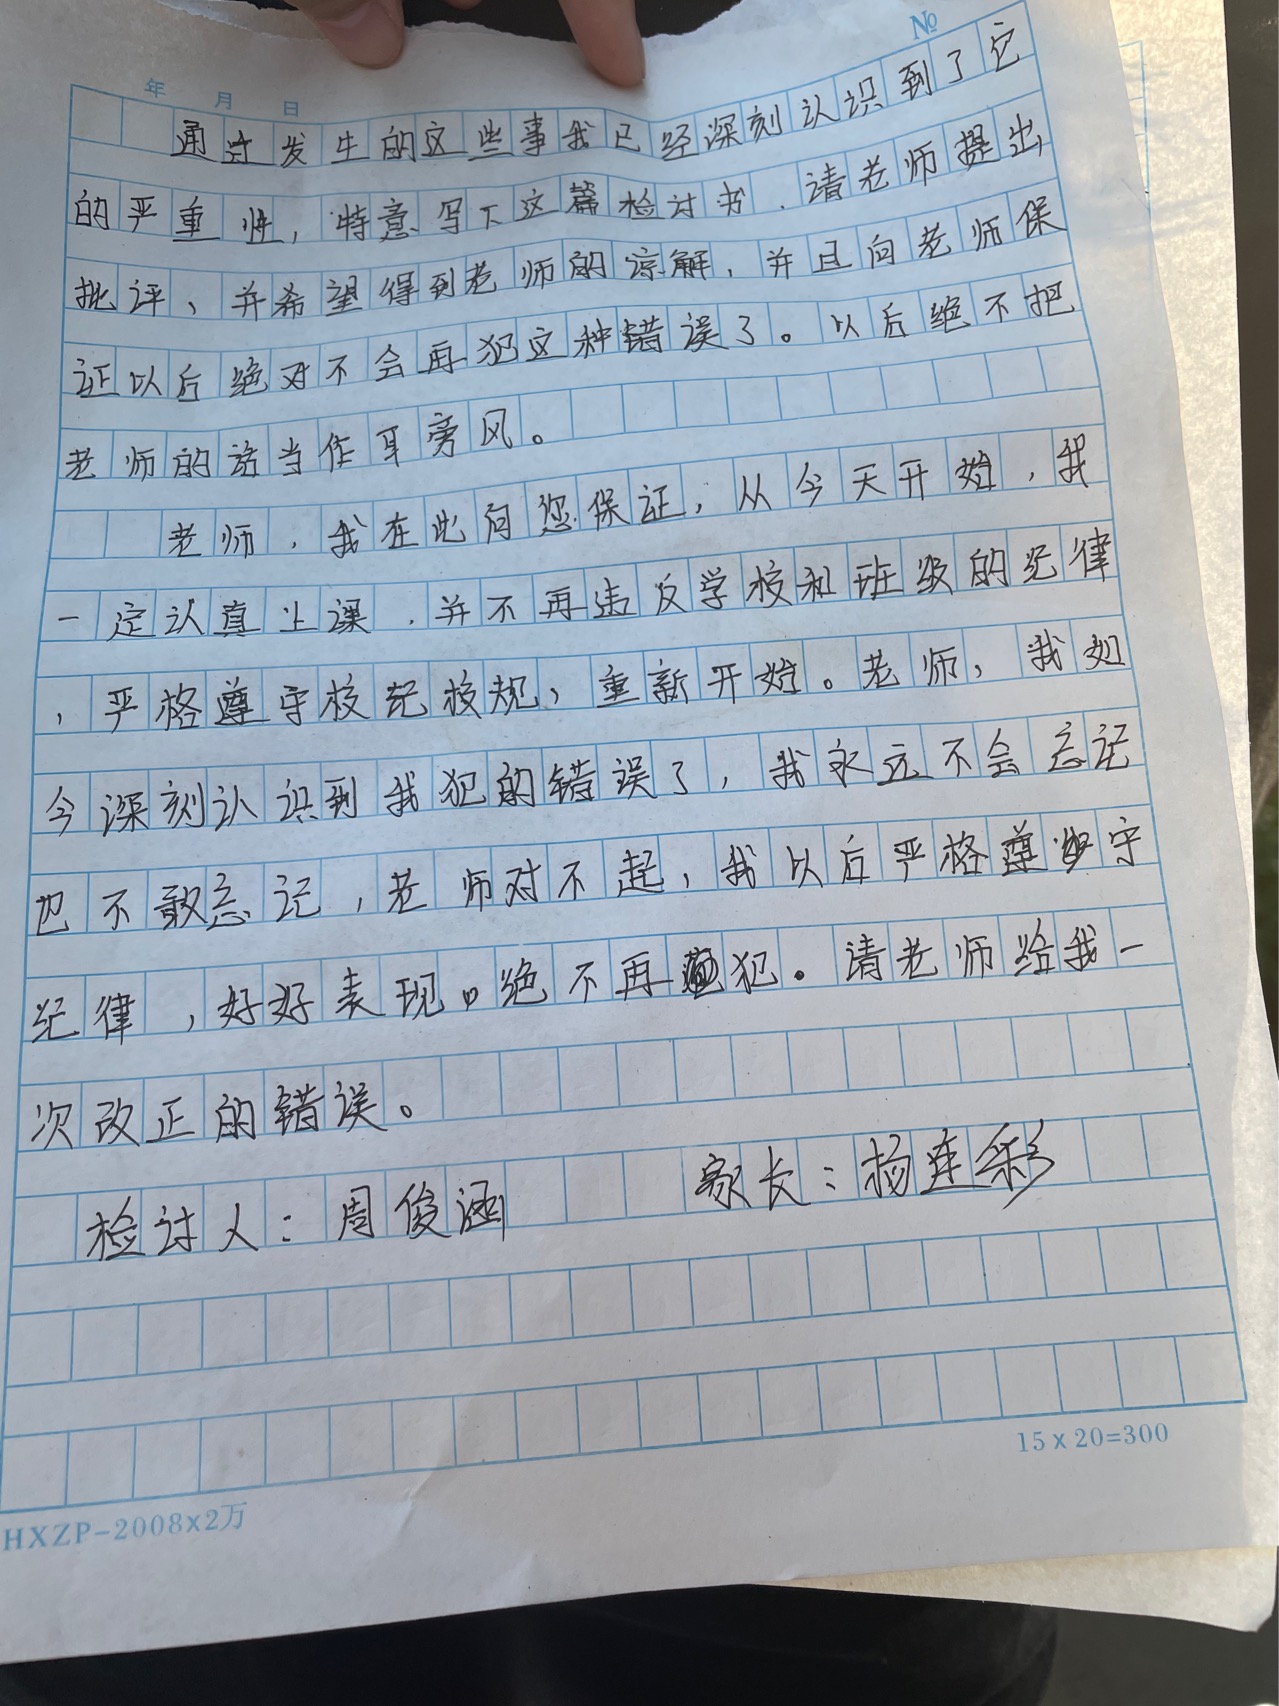 №
年 月 日
通过发生的这些事我已经深刻认识到了它
的严重性，特意写下这篇检讨书，请老师提出
批评、并希望得到老师的谅解，并且向老师保
证以后绝对不会再犯这种错误了。以后绝不把
老师的话当作耳旁风。
老师，我在此向您保证，从今天开始，我
一定认真上课，并不再违反学校和班级的纪律
，严格遵守校纪校规，重新开始。老师，我如
今深刻认识到我犯的错误了，我永远不会忘记
也不敢忘记，老师对不起，我以后严格遵守
纪律，好好表现。绝不再犯。请老师给我一
次改正的错误。
检讨人：周俊涵 家长：杨连彩
15x20=300
HXZP-2008x2万